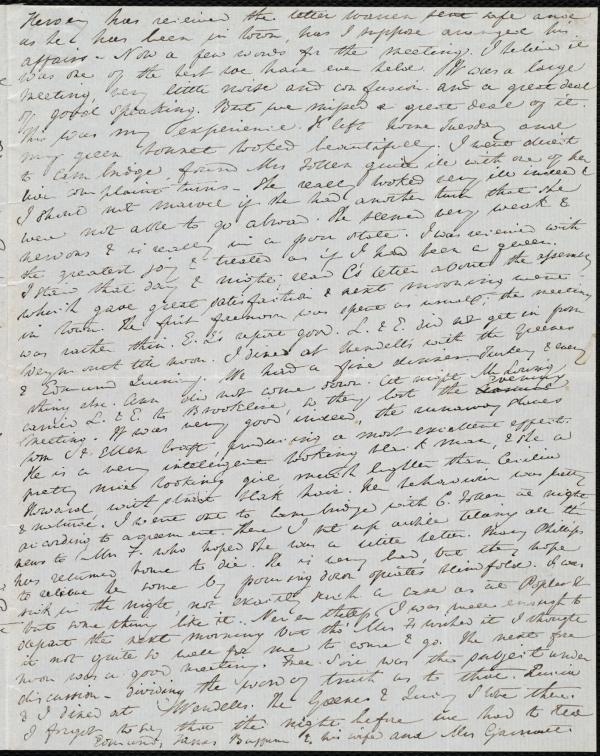 Hervey has received the letter warren sent safe and
as he has been in town, has I suppose arranged his
affairs - Now a few words for the meeting. I believe it
was one of the best we have ever held. It was a large
meeting, very little noise and confusion and a great deal
of good speaking. But we missed a great deal of it.
This was my experience. I left home Tuesday and
my green bonnet looked beautifully. I went direct
to Cambridge, found Mrs Follen quite ill with one of her
liver complaint turns. She really looked very ill indeed &
I should not marvel if she had another turn that she
were not able to go abroad. She seemed very weak &
nervous & is really in a poor state. I was received with
the greatest joy & treated as if I had been a queen.
I staid that day & night, read C's letter about the
which gave great satisfaction & next morning went
in town. The first forenoon was spent as usual; the meeting
was rather thin. E. L's report good. L. & E. did not get in from
Weymouth till noon. I dined at Wendells with the Greenes
& Edmund Quincy. We had a fine dinner, turkey & every
thing else. Ann did not come down. At night
carried L. & E. to Brookline, so they lost the Evening
meeting. It was very good indeed, the runaway slaves
Wm & Ellen Craft, producing a most excellent effect.
He is a very intelligent looking black man, & she a
pretty nice looking girl, much lighter than Cecilia
Howard with straight black hair. Her behaviour was pretty
& natural. I went out to Cambridge with C. Follen at night
according to agreement. There I sat up awhile telling all the
news to Mrs F. who hoped she was a little better. Mary Phillips
has returned home to die. He is very bad, but they hope
to relieve him some by pouring down opiates blindfold. I was
sick in the night, not exactly such a case as at Poplar St
but something like it. Nevertheless I was well enough to
depart the next morning but tho' Mrs F. wished it I thought
it not quite so well for me to come & go. The next fore
noon was a good meeting. Free Soil was the subject under
discussion - dividing the word of truth as to that. Lucia
& I dined at Wendells. The Greenes & Quincy & I were there.
I forgot to say that the night before we had to tea
Edmund, James Buffum & his wife and Mrs Garnaut